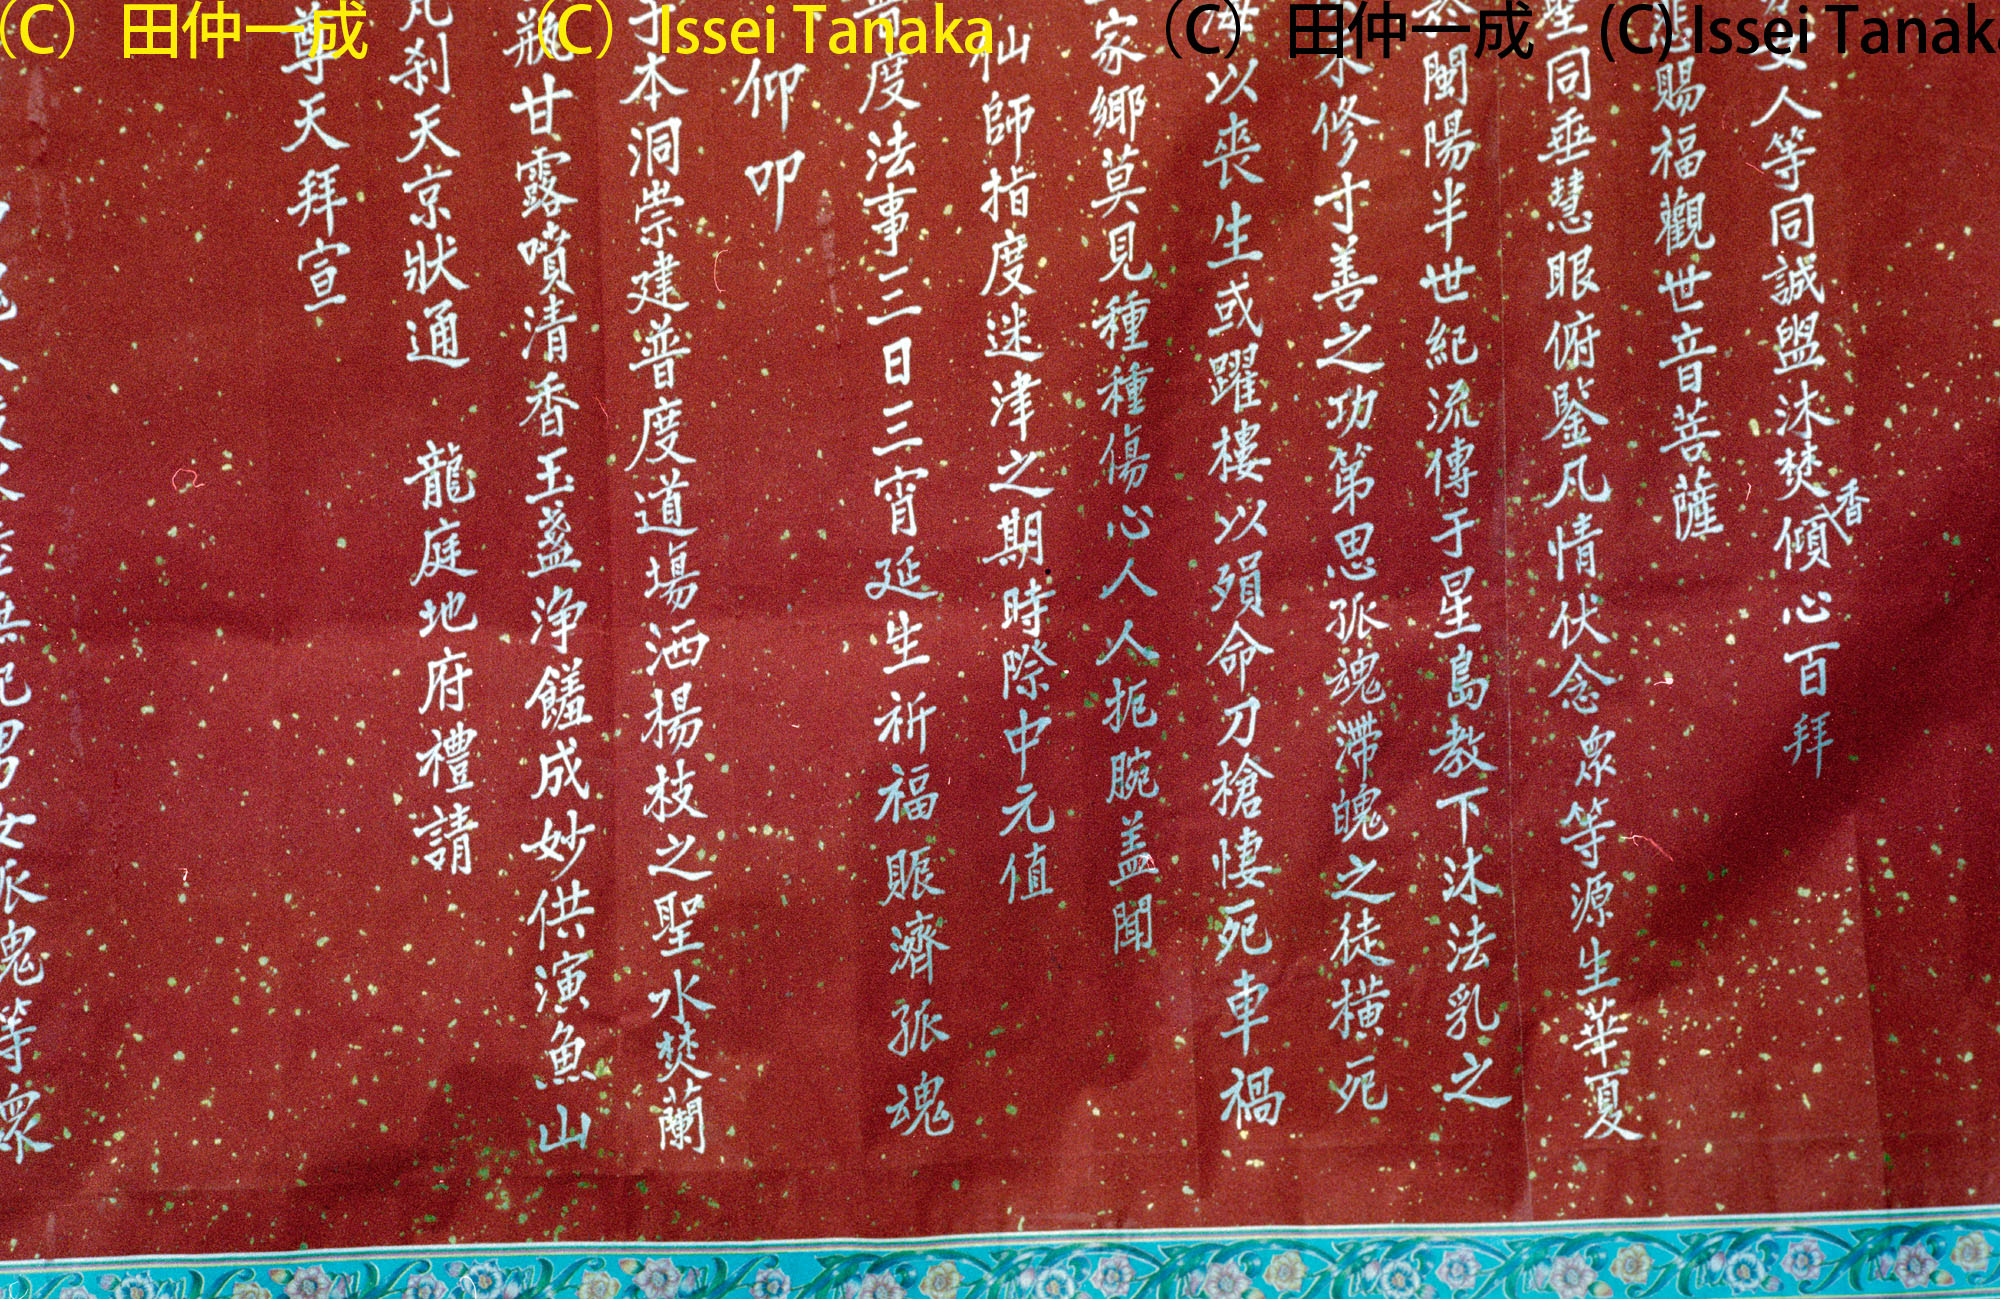 (C) 田仲一成 (C) Issei Tanaka (C) 田仲一成 (C) Issei Tanaka
人等同誠盥沐焚香傾心百拜
悲賜福觀世音菩薩
聖同垂慧眼俯鑒凡情伏念眾等源生華夏
閩陽半世紀流傳于星島教下沐法乳之
修寸善之功第思孤魂滯魄之徒橫死
海以喪生或躍樓以殞命刀槍悽死車禍
家鄉莫見種種傷心人人扼腕盖聞
仙師指度迷津之期時際中元值
普度法事三日三宵延生祈福賑濟孤魂
仰叩
于本洞崇建普度道場洒楊枝之聖水焚蘭
瓶甘露噴清香玉盞浄饈成妙供演魚山
凡刹天京狀通 龍庭地府禮請
尊天拜宣
男女孤魂等眾